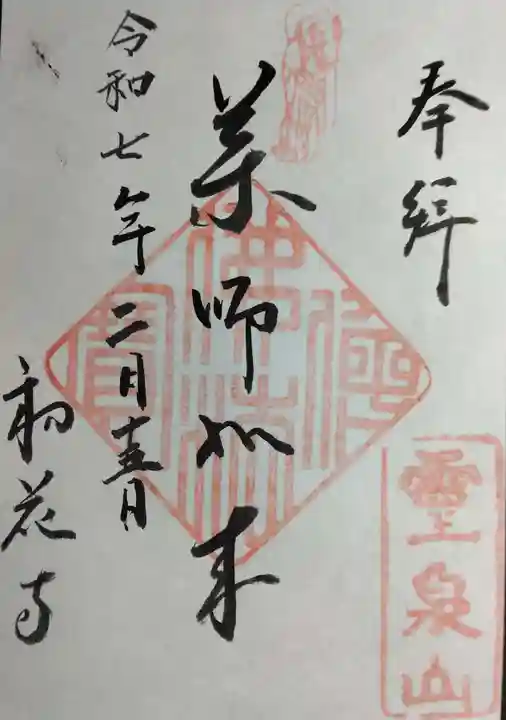 奉拝
薬師如来
令和七年二月十五日
初花寺
霊泉山
佛法僧寳